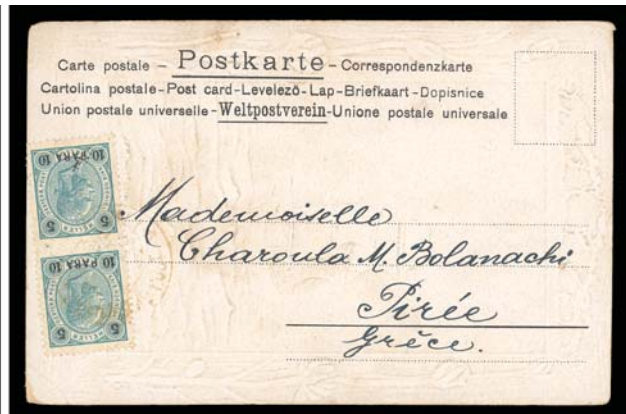 Carte postale – Postkarte – Correspondenzkarte
Cartolina postale-Post card-Levelező-Lap-Briefkaart-Dopisnice
Union postale universelle-Weltpostverein-Unione postale universale
10 PARA 10
5 HELLER 5
10 PARA 10
5 HELLER 5
Mademoiselle
Charoula M. Bolanachi
Pirée
Grèce.